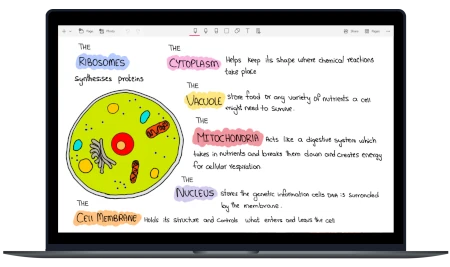 THE
RIBOSOMES
synthesises proteins
THE
CYTOPLASM Helps keep its shape where chemical reactions
take place
THE
VACUOLE store food or any variety of nutrients a cell
might need to survive.
THE
MITOCHONDRIA Acts like a digestive system which
takes in nutrients and breaks them down and creates energy
for cellular respiration
THE
NUCLEUS stores the genetic information cells DNA is surrounded
by the membrane.
THE
CELL MEMBRANE Holds its structure and controls what enters and leaves the cell